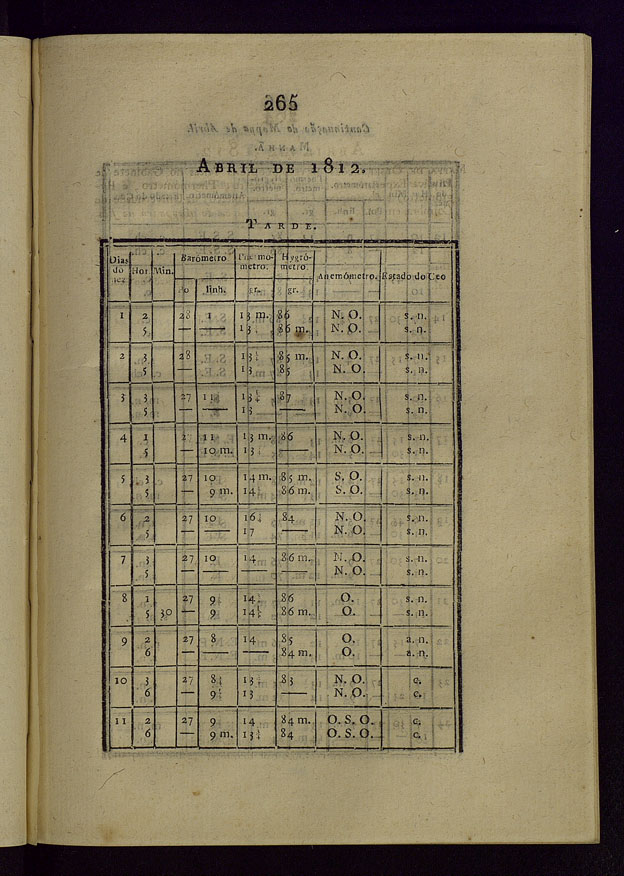 265
ABRIL DE 1812.
TARDE.
Dias do Hor. Min. Barómetro Thermo-metro. Hygró-metro Anemómetro. Estado do Ceo
linh. gr. gr.
1 2 28 1 13 m. 86 N. O. s. n.
5 — — 13 86 m. N. O. s. n.
2 3 28 13 85 m. N. O. s. n.
5 — 13 85 N. O. s. n.
3 3 27 11 13 87 N. O. s. n.
5 — — 13 — N. O. s. n.
4 1 27 11 13 m. 86 N. O. s. n.
5 — 10 m. 13 — N. O. s. n.
5 3 27 10 14 m. 85 m. S. O. s. n.
5 — 9 m. 14 86 m. S. O. s. n.
6 2 27 10 16 84 N. O. s. n.
5 — — 17 — N. O. s. n.
7 3 27 10 14 86 m. N. O. s. n.
5 — — — — N. O. s. n.
8 1 27 9 14 86 O. s. n.
5 30 — 9 14 86 m. O. s. n.
9 2 27 8 14 85 O. a. n.
6 — — — 84 m. O. a. n.
10 3 27 8 13 83 N. O. c.
6 — 9 13 — N. O. c.
11 2 27 9 14 84 m. O. S. O. c.
6 — 9 m. 13 84 O. S. O. c.